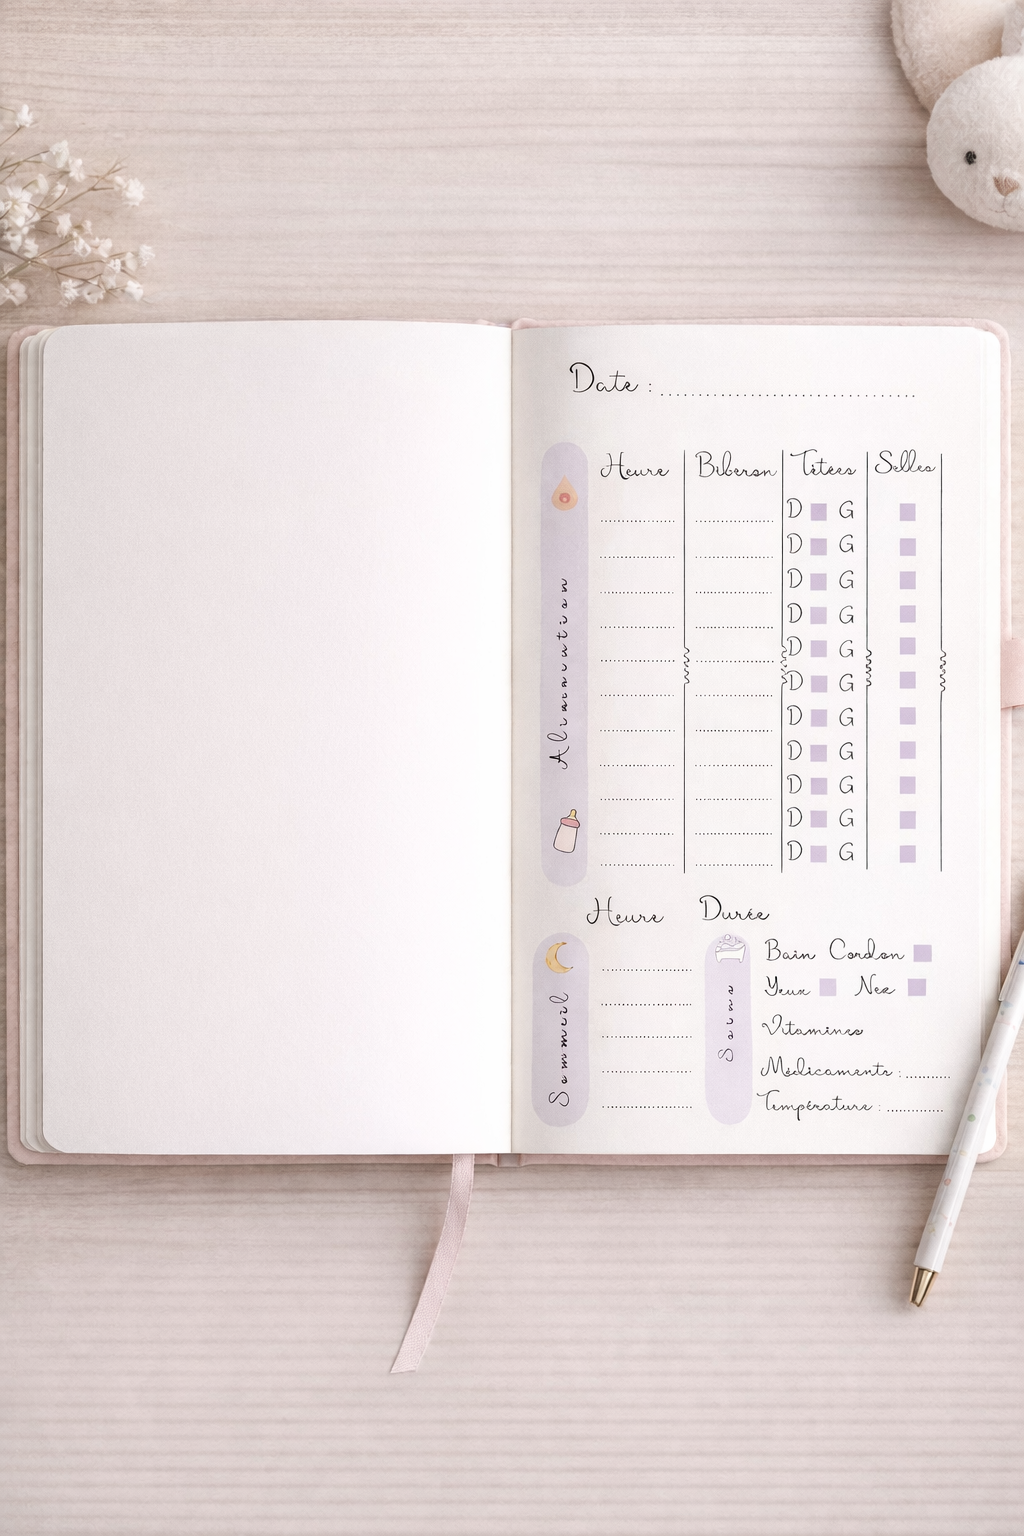 Date : ................................
Heure Biberon Tétées Selles
D G
D G
D G
D G
D G
D G
D G
D G
D G
D G
D G
Alimentation
Heure Durée
Sommeil
Soins
Bain Cordon
Yeux Nez
Vitamines
Médicaments : .........
Température : ...........